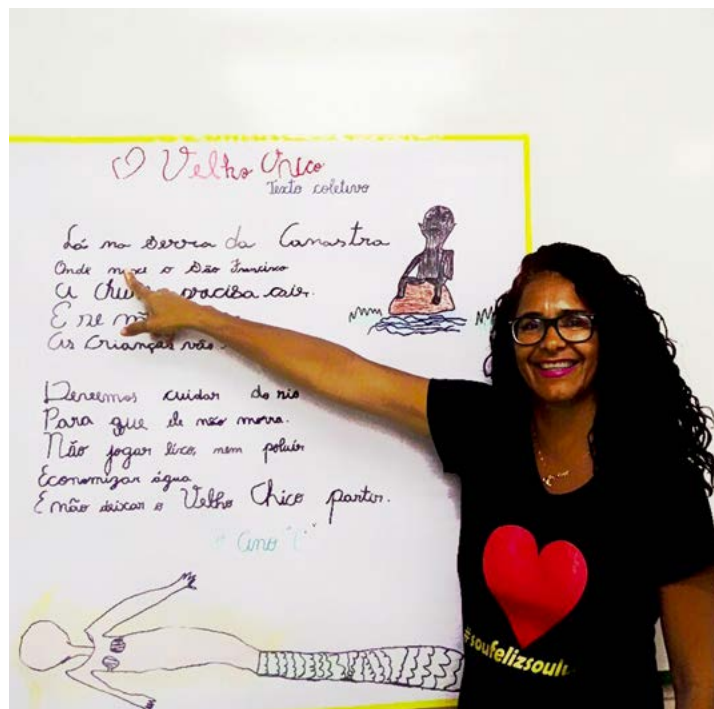 O Velho Chico
Texto coletivo
Lá na Serra da Canastra
Onde nasce o São Francisco
A chuva precisa cair.
E se não
As crianças vão
Devemos cuidar do rio
Para que ele não morra.
Não jogar lixo, nem poluir
Economizar água
E não deixar o Velho Chico partir.
ano
#soufelizsou